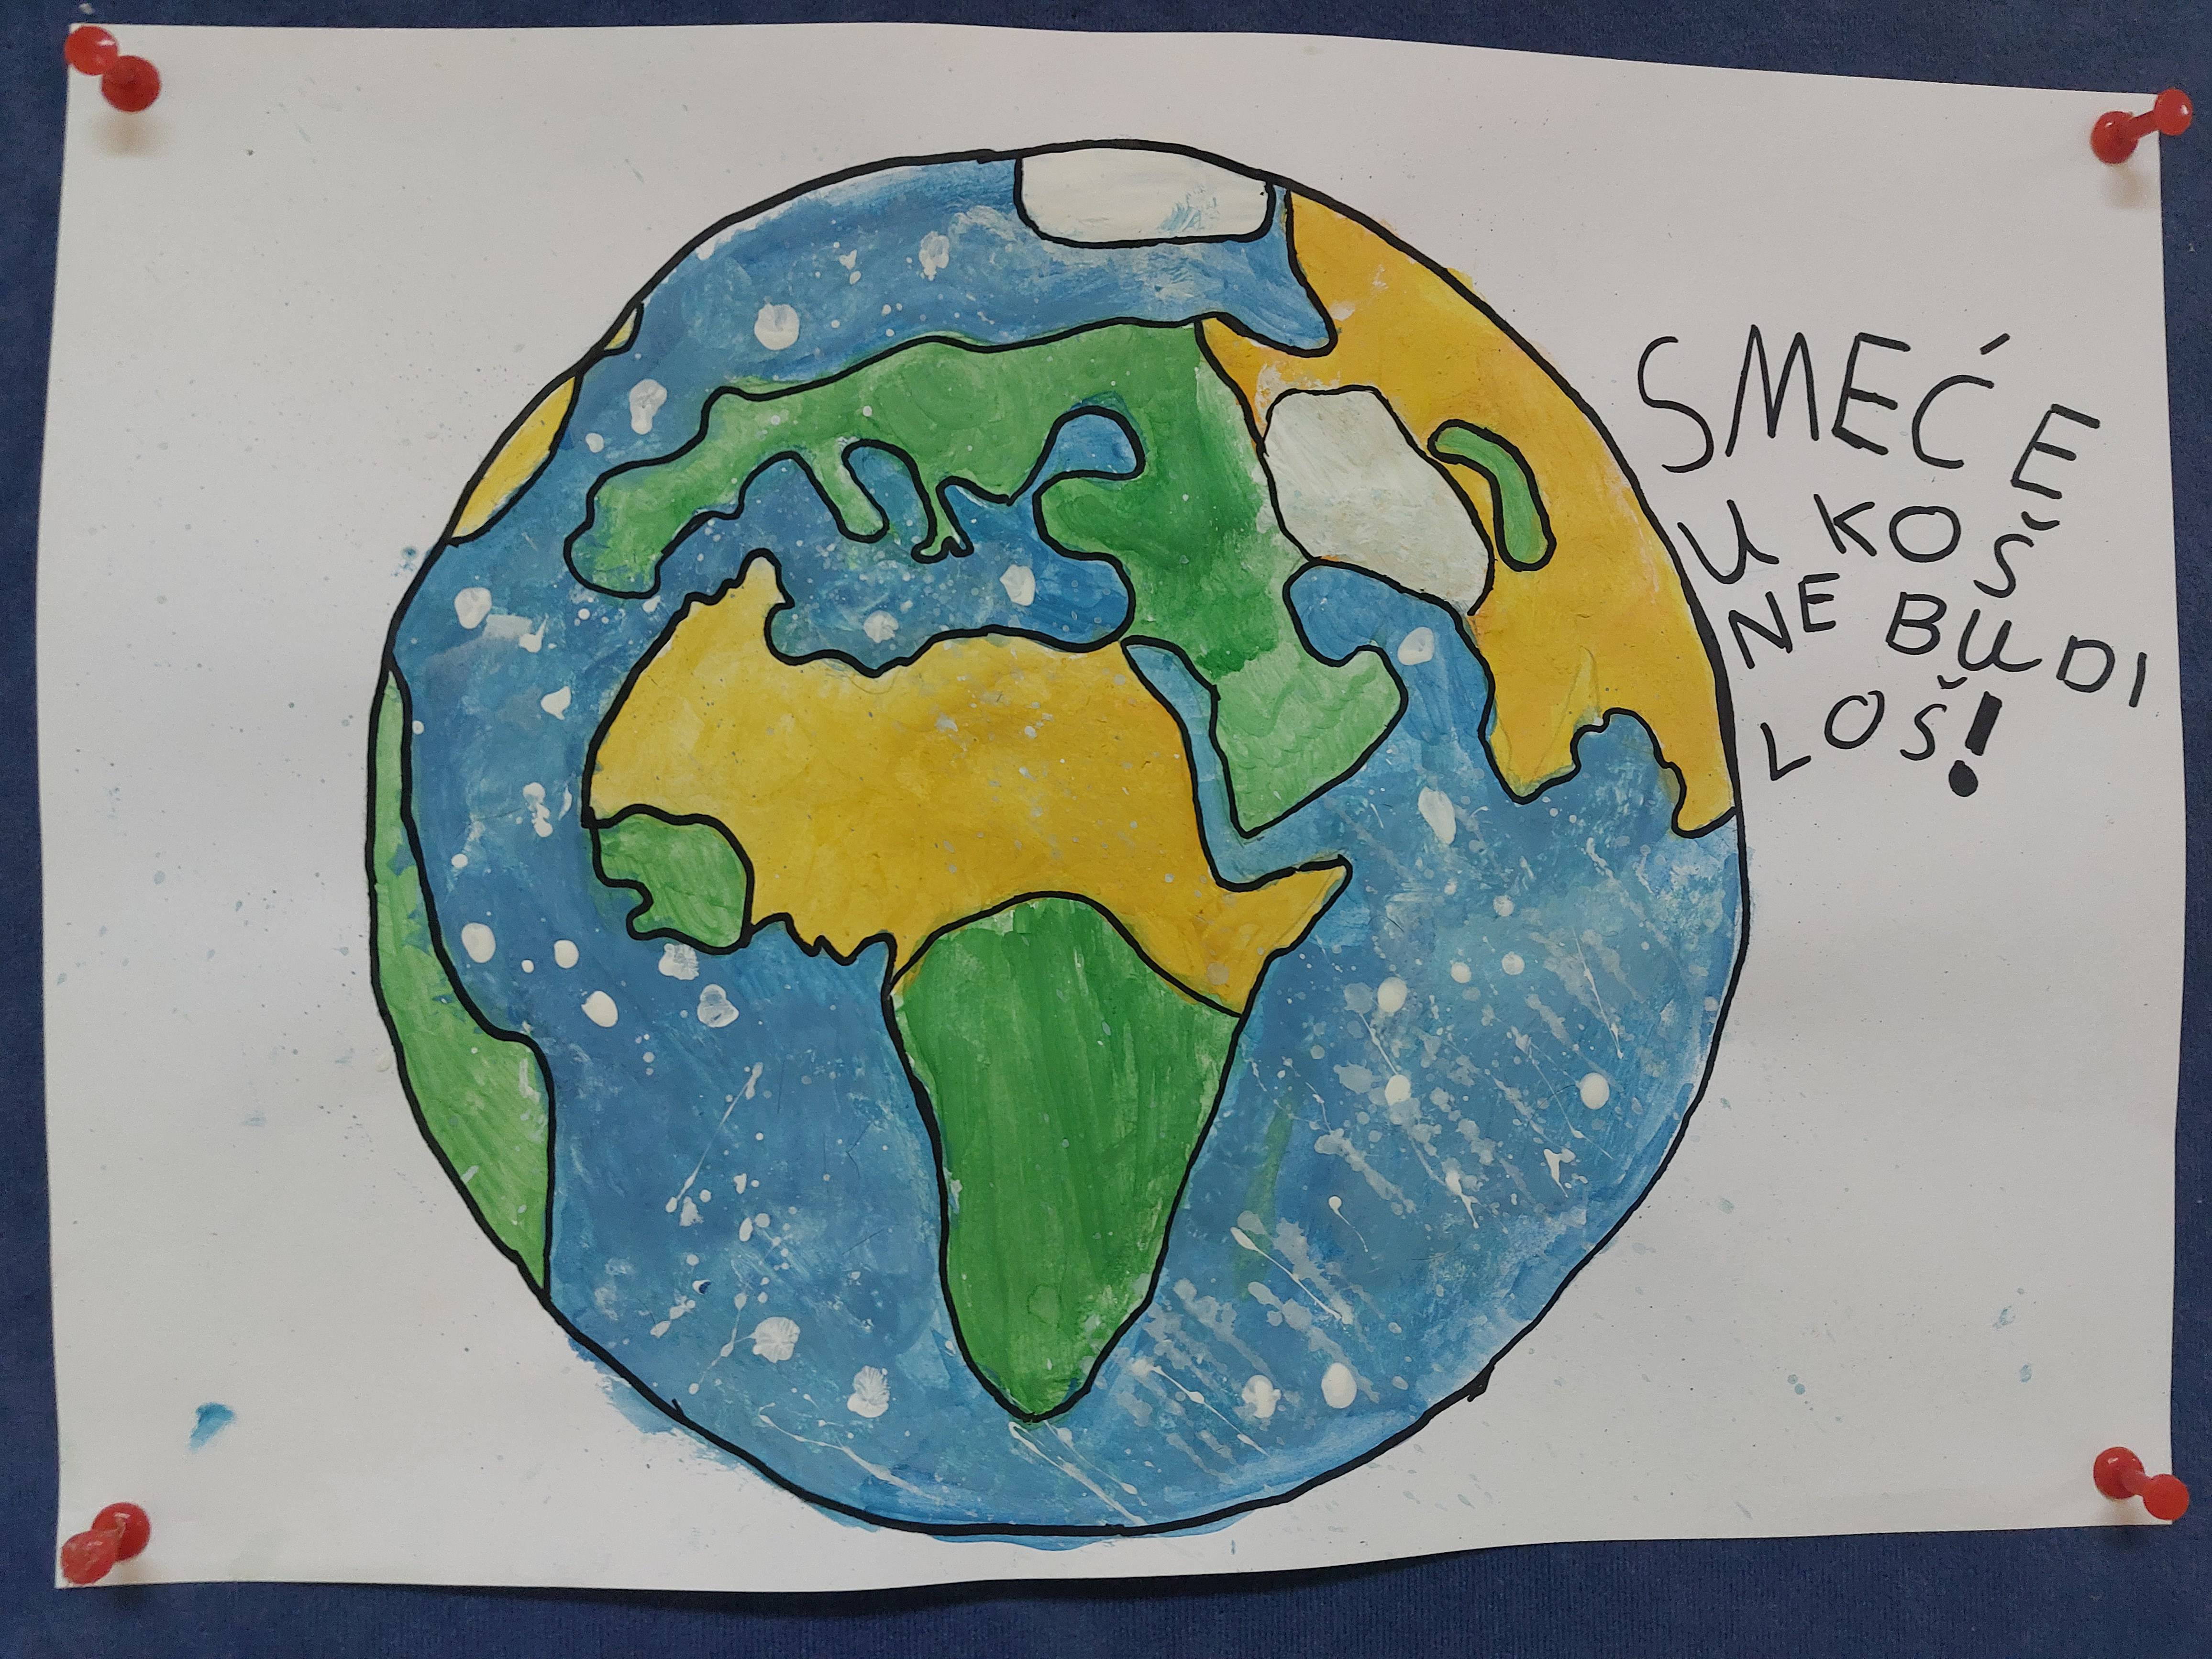 SMEĆE
U KOŠ
NE BUDI
LOŠ!